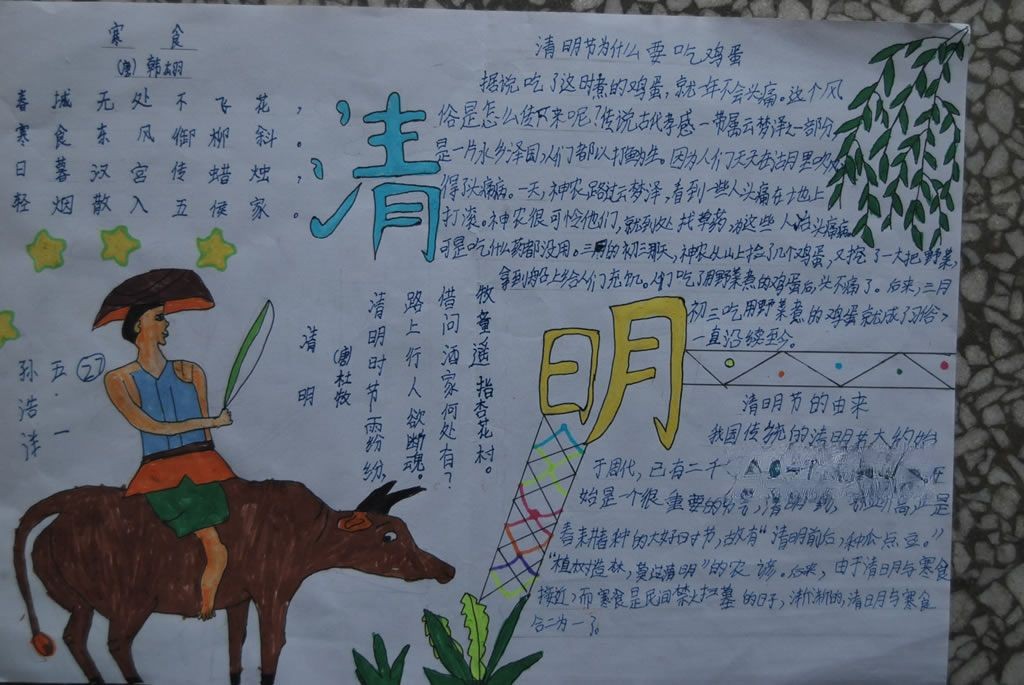 寒食
(唐) 韩翃
春城无处不飞花，
寒食东风御柳斜。
日暮汉宫传蜡烛，
轻烟散入五侯家。
清
明
清明节为什么要吃鸡蛋
据说吃了这时煮的鸡蛋，就一年不会头痛。这个风
俗是怎么传下来呢？传说古代孝感一带属云梦泽之一部分
是一片水乡泽国，人们都以打鱼为生。因为人们天天在湖里
得了头痛病。一天，神农路过云梦泽，看到一些人头痛在地上
打滚。神农很可怜他们，就到处找草药为这些人治头痛病
可是吃什么药都没用。三月的初三那天，神农从山上捡了几个鸡蛋，又挖了一大把野菜，
拿到给人们充饥。人们吃了用野菜煮的鸡蛋后，头不痛了。后来，三月
初三吃用野菜煮的鸡蛋就成了习俗，
一直沿续至今。
清明
(唐)杜牧
清明时节雨纷纷，
路上行人欲断魂。
借问酒家何处有？
牧童遥指杏花村。
五.一
27
孙浩
清明节的由来
我国传统的清明节大约始
于周代，已有二千
始是一个很重要的
春耕春种的大好时节，故有“清明前后，种瓜点豆。”
“植树造林，莫过清明”的农谚。后来，由于清明与寒食
接近，而寒食是民间禁火扫墓的日子，渐渐的，清明与寒食
合二为一了。